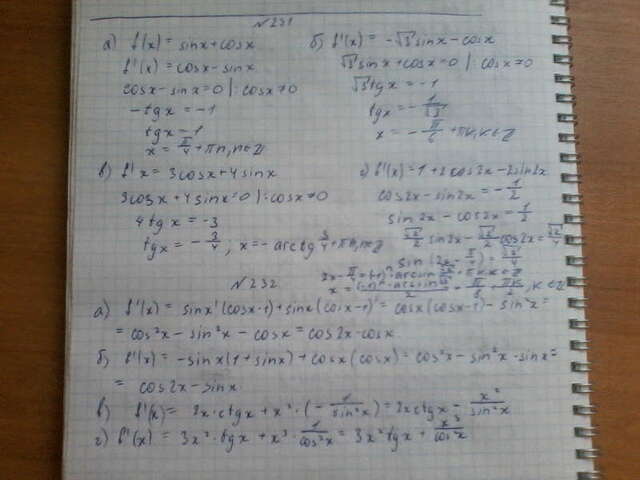 № 231
а) f(x) = sinx + cosx
f'(x) = cosx - sinx
cosx - sinx = 0 | : cosx ≠ 0
-tgx = -1
tgx = 1
x = π/4 + πn, n∈Z
б) f'(x) = -√3 sinx - cosx
√3 sinx + cosx = 0 | : cosx ≠ 0
√3 tgx = -1
tgx = -1/√3
x = -π/6 + πk, k∈Z
в) f'x = 3cosx + 4sinx
3cosx + 4sinx = 0 | : cosx ≠ 0
4tgx = -3
tgx = -3/4 ; x = -arctg 3/4 + πn, n∈Z
г) f'(x) = 1 + 2cos2x - 2sin2x
cos2x - sin2x = -1/2
sin2x - cos2x = 1/2
√2/2 sin2x - √2/2 cos2x = √2/4
sin(2x - π/4) = √2/4
№ 232
а) f'(x) = sinx'(cosx-1) + sinx(cosx-1)' = cosx(cosx-1) - sin²x =
= cos²x - sin²x - cosx = cos2x - cosx
б) f'(x) = -sinx(1+sinx) + cosx(cosx) = cos²x - sin²x - sinx =
= cos2x - sinx
в) f'(x) = 2x·ctgx + x²·(-1/sin²x) = 2xctgx - x²/sin²x
г) f'(x) = 3x²·tgx + x³·1/cos²x = 3x²tgx + x³/cos²x